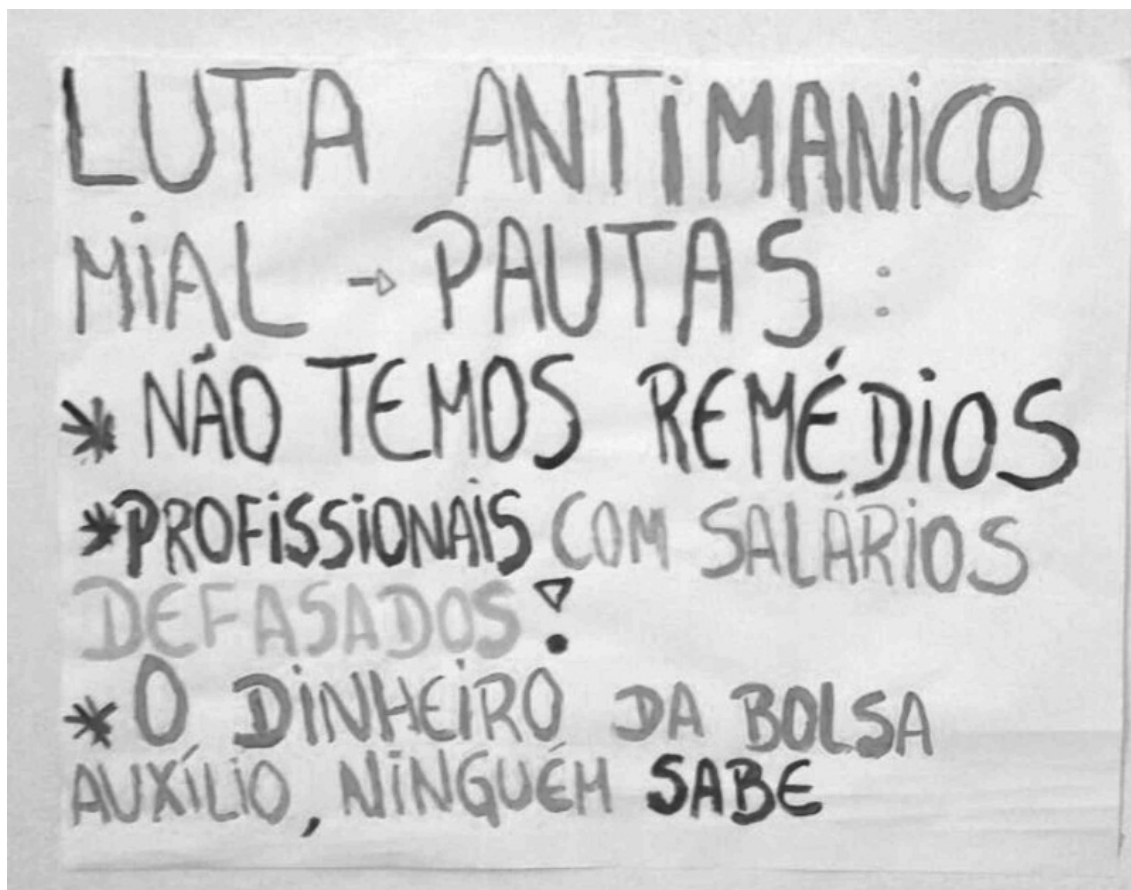 LUTA ANTIMANICO
MIAL → PAUTAS :
* NÃO TEMOS REMÉDIOS
* PROFISSIONAIS COM SALÁRIOS
DEFASADOS !
* O DINHEIRO DA BOLSA
AUXÍLIO, NINGUÉM SABE